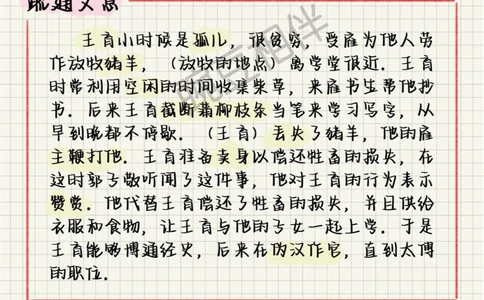 疏通文意
王育小时候是孤儿，很贫穷，受雇为他人劳
作放牧猪羊，（放牧的地点）离学堂很近．王育
时常利用空闲的时间收集柴草，来雇书生帮他抄
书．后来王育截断蒲柳枝条当笔来学习写字，从
早到晚都不停歇．（王育）丢失了猪羊，他的雇
主鞭打他．王育准备卖身以偿还牲畜的损失，在
这时郭子敬听闻了这件事，他对王育的行为表示
赞赏．他代替王育偿还了牲畜的损失，并且供给
衣服和食物，让王育与他的子女一起上学．于是
王育能够博通经史，后来在伪汉作官，直到太傅
的职位．